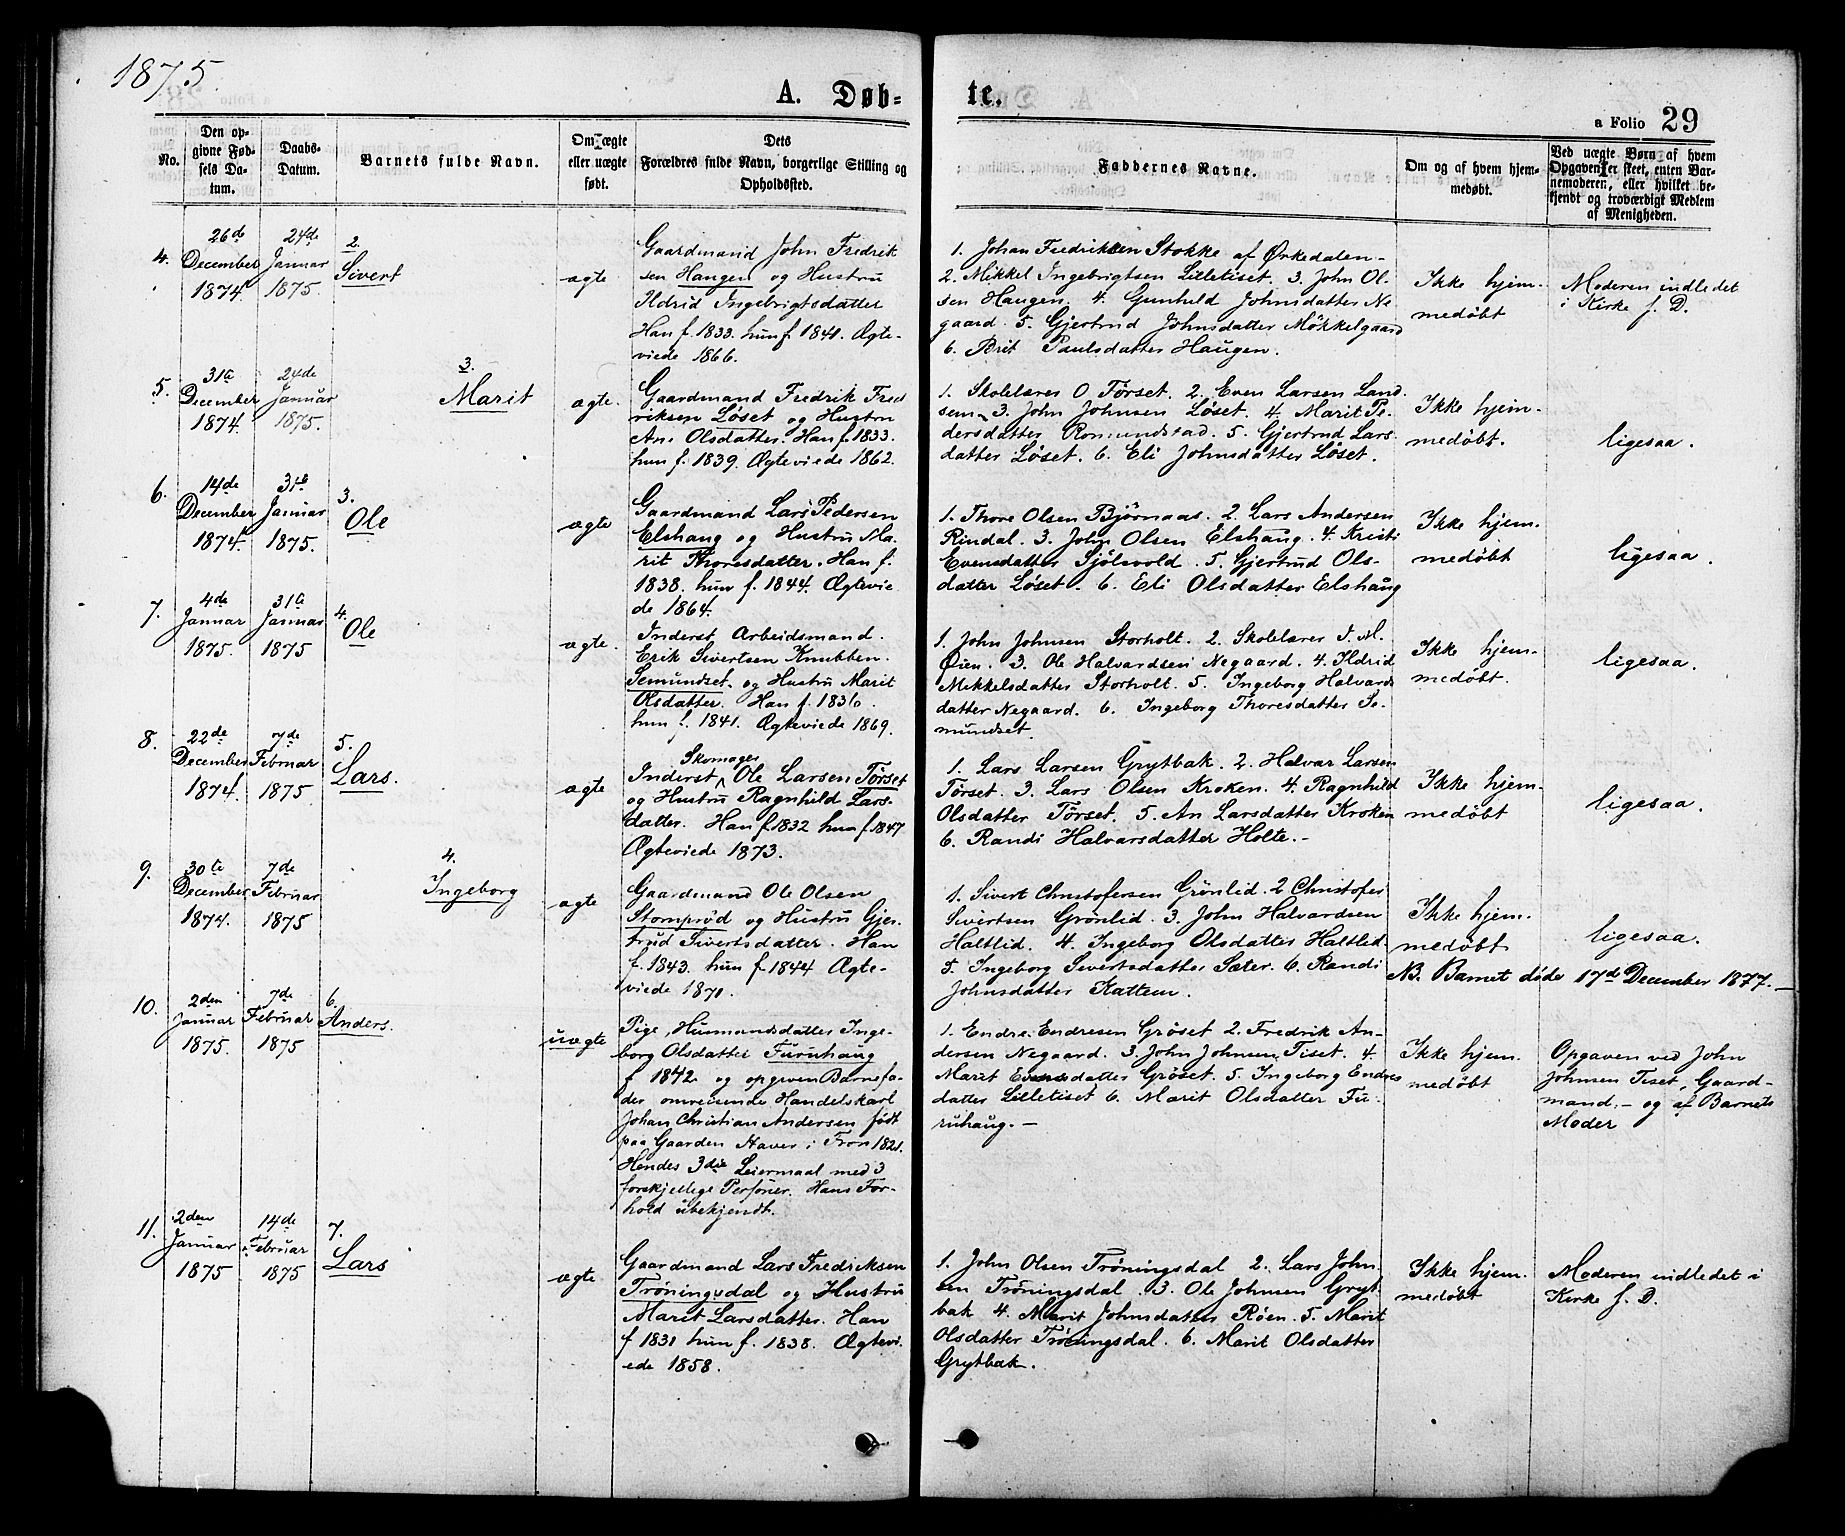 1875.
A. Døbte.
a Folio 29
No.
Den opgivne Fødsels Datum.
Daabs-Datum.
Barnets fulde Navn.
Om ægte eller uægte født.
Dets Forældres fulde Navn, borgerlige Stilling og Opholdssted.
Faddernes Navne.
Om og af hvem hjemmedøbt.
Ved uægte Børn af hvem Opgaven er skeet, enten Barnemoderen, eller hvilket bekjendt og troværdigt Medlem af Menigheden.
4.
26de December 1874.
24de Januar 1875.
2.
Sivert
ægte
Gaardmand John Fredrik
sen Haugen og Hustru
Ildrid Ingebrigtsdatter
Han f. 1833. hun f. 1841. Ægte-
viede 1866.
1. Johan Fredriksen Stokke af Ørkedalen -
2. Mikkel Ingebrigtsen Lilletiset. 3. John Ol-
sen Haugen. 4. Gunhild Johnsdatter Ne
gaard. 5. Gjertrud Johnsdatter Møkkelgaard
6. Brit Paulsdatter Haugen.
Ikke hjem-
medøbt
Moderen indledet
i Kirke f. D.
5.
31te December 1874.
24de Januar 1875.
3.
Marit
ægte.
Gaardmand Fredrik Fred
riksen Løset og Hustru
Ane Olsdatter. Han f. 1833.
hun f. 1839. Ægteviede 1862.
1. Skolelærer O Tørset. 2. Even Larsen Land
sem. 3. John Johnsen Løset. 4. Marit Pe-
dersdatter Romundstad. 5. Gjertrud Lars
datter Løset. 6. Eli Johnsdatter Løset.
Ikke hjem-
medøbt.
ligesaa.
6.
14de December 1874.
31te Januar 1875.
3.
Ole
ægte
Gaardmand Lars Pedersen
Elshaug og Hustru Ma-
rit Thoresdatter. Han f.
1838. hun f. 1844. Ægtevie
de 1864.
1. Thore Olsen Bjørnaas. 2. Lars Andersen
Rindal. 3. John Olsen Elshaug. 4. Kristi
Evensdatter Sjølsvold. 5. Gjertrud Ols-
datter Løset. 6. Eli Olsdatter Elshaug
Ikke hjem-
medøbt
ligesaa.
7.
4de Januar 1875.
31te Januar 1875
4.
Ole
ægte.
Inderst Arbeidsmand.
Erik Sivertsen Knubben.
Semundset. og Hustru Marit
Olsdatter. Han f. 1836.
hun f. 1841. Ægteviede 1869.
1. John Johnsen Storholt. 2. Skolelærer J. M.
Øien. 3. Ole Halvardsen Negaard. 4. Ildrid
Mikkelsdatter Storholt. 5. Ingeborg Halvards
datter Negaard. 6. Ingeborg Thoresdatter Se-
mundset.
Ikke hjem-
medøbt.
ligesaa.
8.
22de December 1874.
7de Februar 1875
5.
Lars.
ægte
Skomager
Inderst Ole Larsen Tørset
og Hustru Ragnhild Lars-
datter. Han f. 1832 hun f. 1847
Ægteviede 1873.
1. Lars Larsen Grytbak. 2. Halvar Larsen
Tørset. 3. Lars Olsen Kroken. 4. Ragnhild
Olsdatter Tørset. 5. An Larsdatter Kroken
6. Randi Halvarsdatter Holte. -
Ikke hjem-
medøbt
ligesaa.
9.
30te December 1874.
7de Februar 1875
4.
Ingeborg
ægte
Gaardmand Ole Olsen
Stomprød og Hustru Gjer-
trud Sivertsdatter. Han
f. 1843. hun f. 1844 Ægte-
viede 1871.
1. Sivert Christofersen Grønlid. 2 Christofer
Sivertsen Grønlid. 3. John Halvardsen
Haltlid. 4. Ingeborg Olsdatter Haltlid.
5. Ingeborg Sivertsdatter Sæter. 6. Randi
Johnsdatter Kattem.
Ikke hjem-
medøbt
ligesaa.
NB. Barnet døde 17de December 1877. -
10.
2den Januar 1875.
7de Februar 1875
6.
Anders.
uægte
Pige, Husmandsdatter Inge-
borg Olsdatter Furuhaug
f. 1842 og opgiven Barnefa-
der omreisende Handelskarl
Johan Christian Andersen født
paa Gaarden Haver i Fron 1821.
Hendes 3die Leiermaal med 3
forskjellige Personer. Hans For-
hold ubekjendt.
1. Endre Endresen Grøset 2. Fredrik An-
dersen Negaard. 3. John Johnsen Tiset. 4.
Marit Evensdatter Grøset. 5. Ingeborg Endres
datter Lilletiset 6. Marit Olsdatter Fu-
ruhaug. -
Ikke hjem-
medøbt
Opgaven ved John
Johnsen Tiset, Gaard-
mand. - og af Barnets
Moder
11.
2den Januar 1875
14de Februar 1875
7.
Lars
ægte
Gaardmand Lars Fredriksen
Trøningsdal og Hustru
Marit Larsdatter. Han
f 1831 hun f. 1838. Ægtevi-
ede 1858.
1. John Olsen Trøningsdal 2. Lars John
sen Trøningsdal. 3. Ole Johnsen Gryt
bak 4. Marit Johnsdatter Røen. 5. Marit
Olsdatter Trøningsdal. 6. Marit Olsdatter
Grytbak.
Ikke hjem-
medøbt
Moderen indledet i
Kirke f. D.